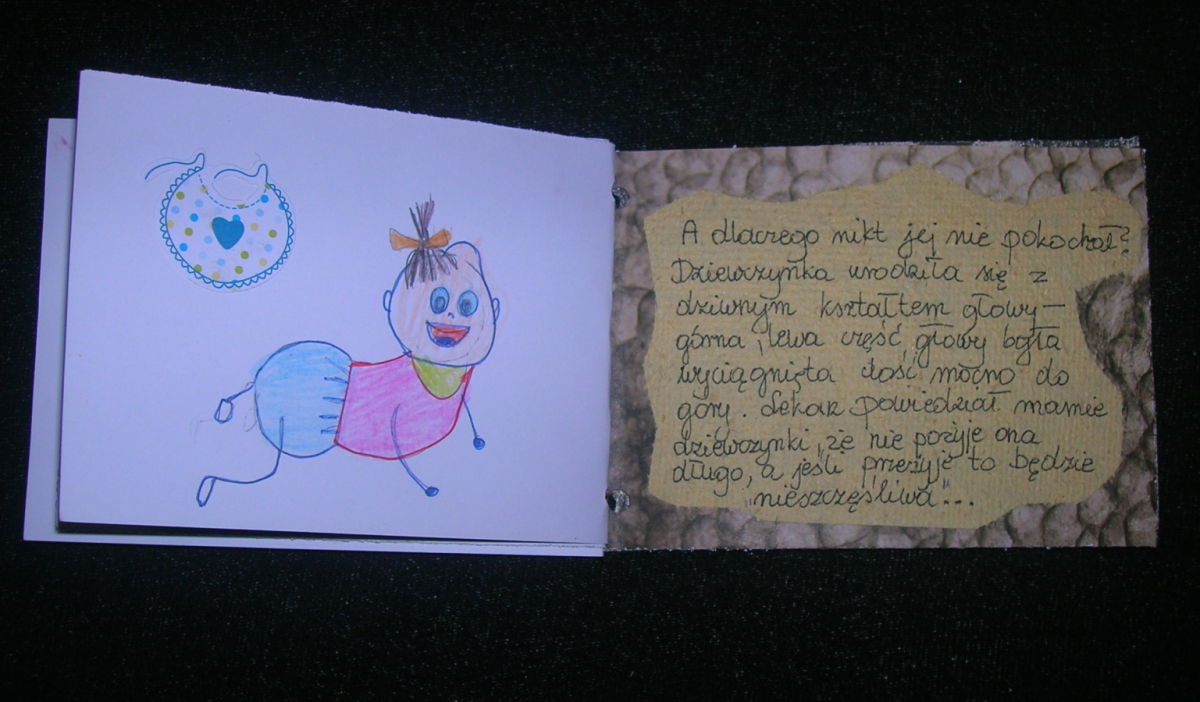 A dlaczego nikt jej nie pokochał?
Dziewczynka urodziła się z
dziwnym kształtem głowy -
górna, lewa część głowy była
wyciągnięta dość mocno do
góry. Lekarz powiedział mamie
dziewczynki, że nie pożyje ona
długo, a jeśli przeżyje to będzie
"nieszczęśliwa"...